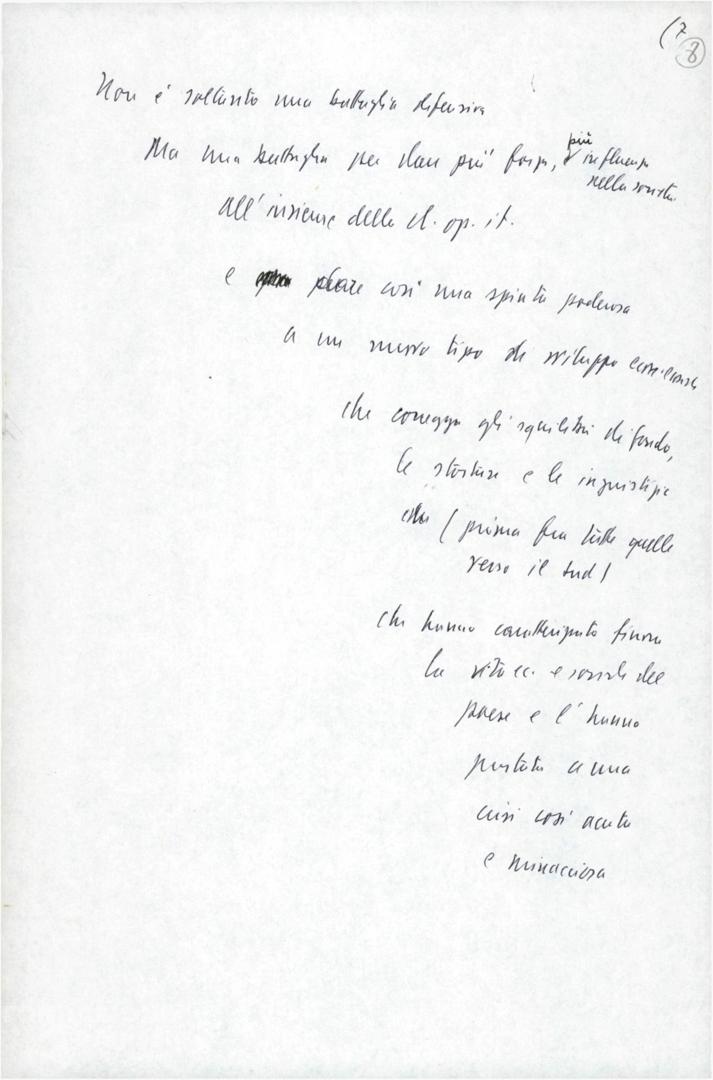 (7
8
Non è soltanto una battaglia difensiva
Ma una battaglia per dare più forza, più influenza
nella società
all'insieme della cl. op. it.
e dare così una spinta poderosa
a un nuovo tipo di sviluppo
che corregga gli squilibri di fondo,
le storture e le ingiustizie
(prima fra tutte quelle
verso il sud)
che hanno caratterizzato finora
la vita ec. e sociale del
paese e l'hanno
portata a una
crisi così acuta
e minacciosa